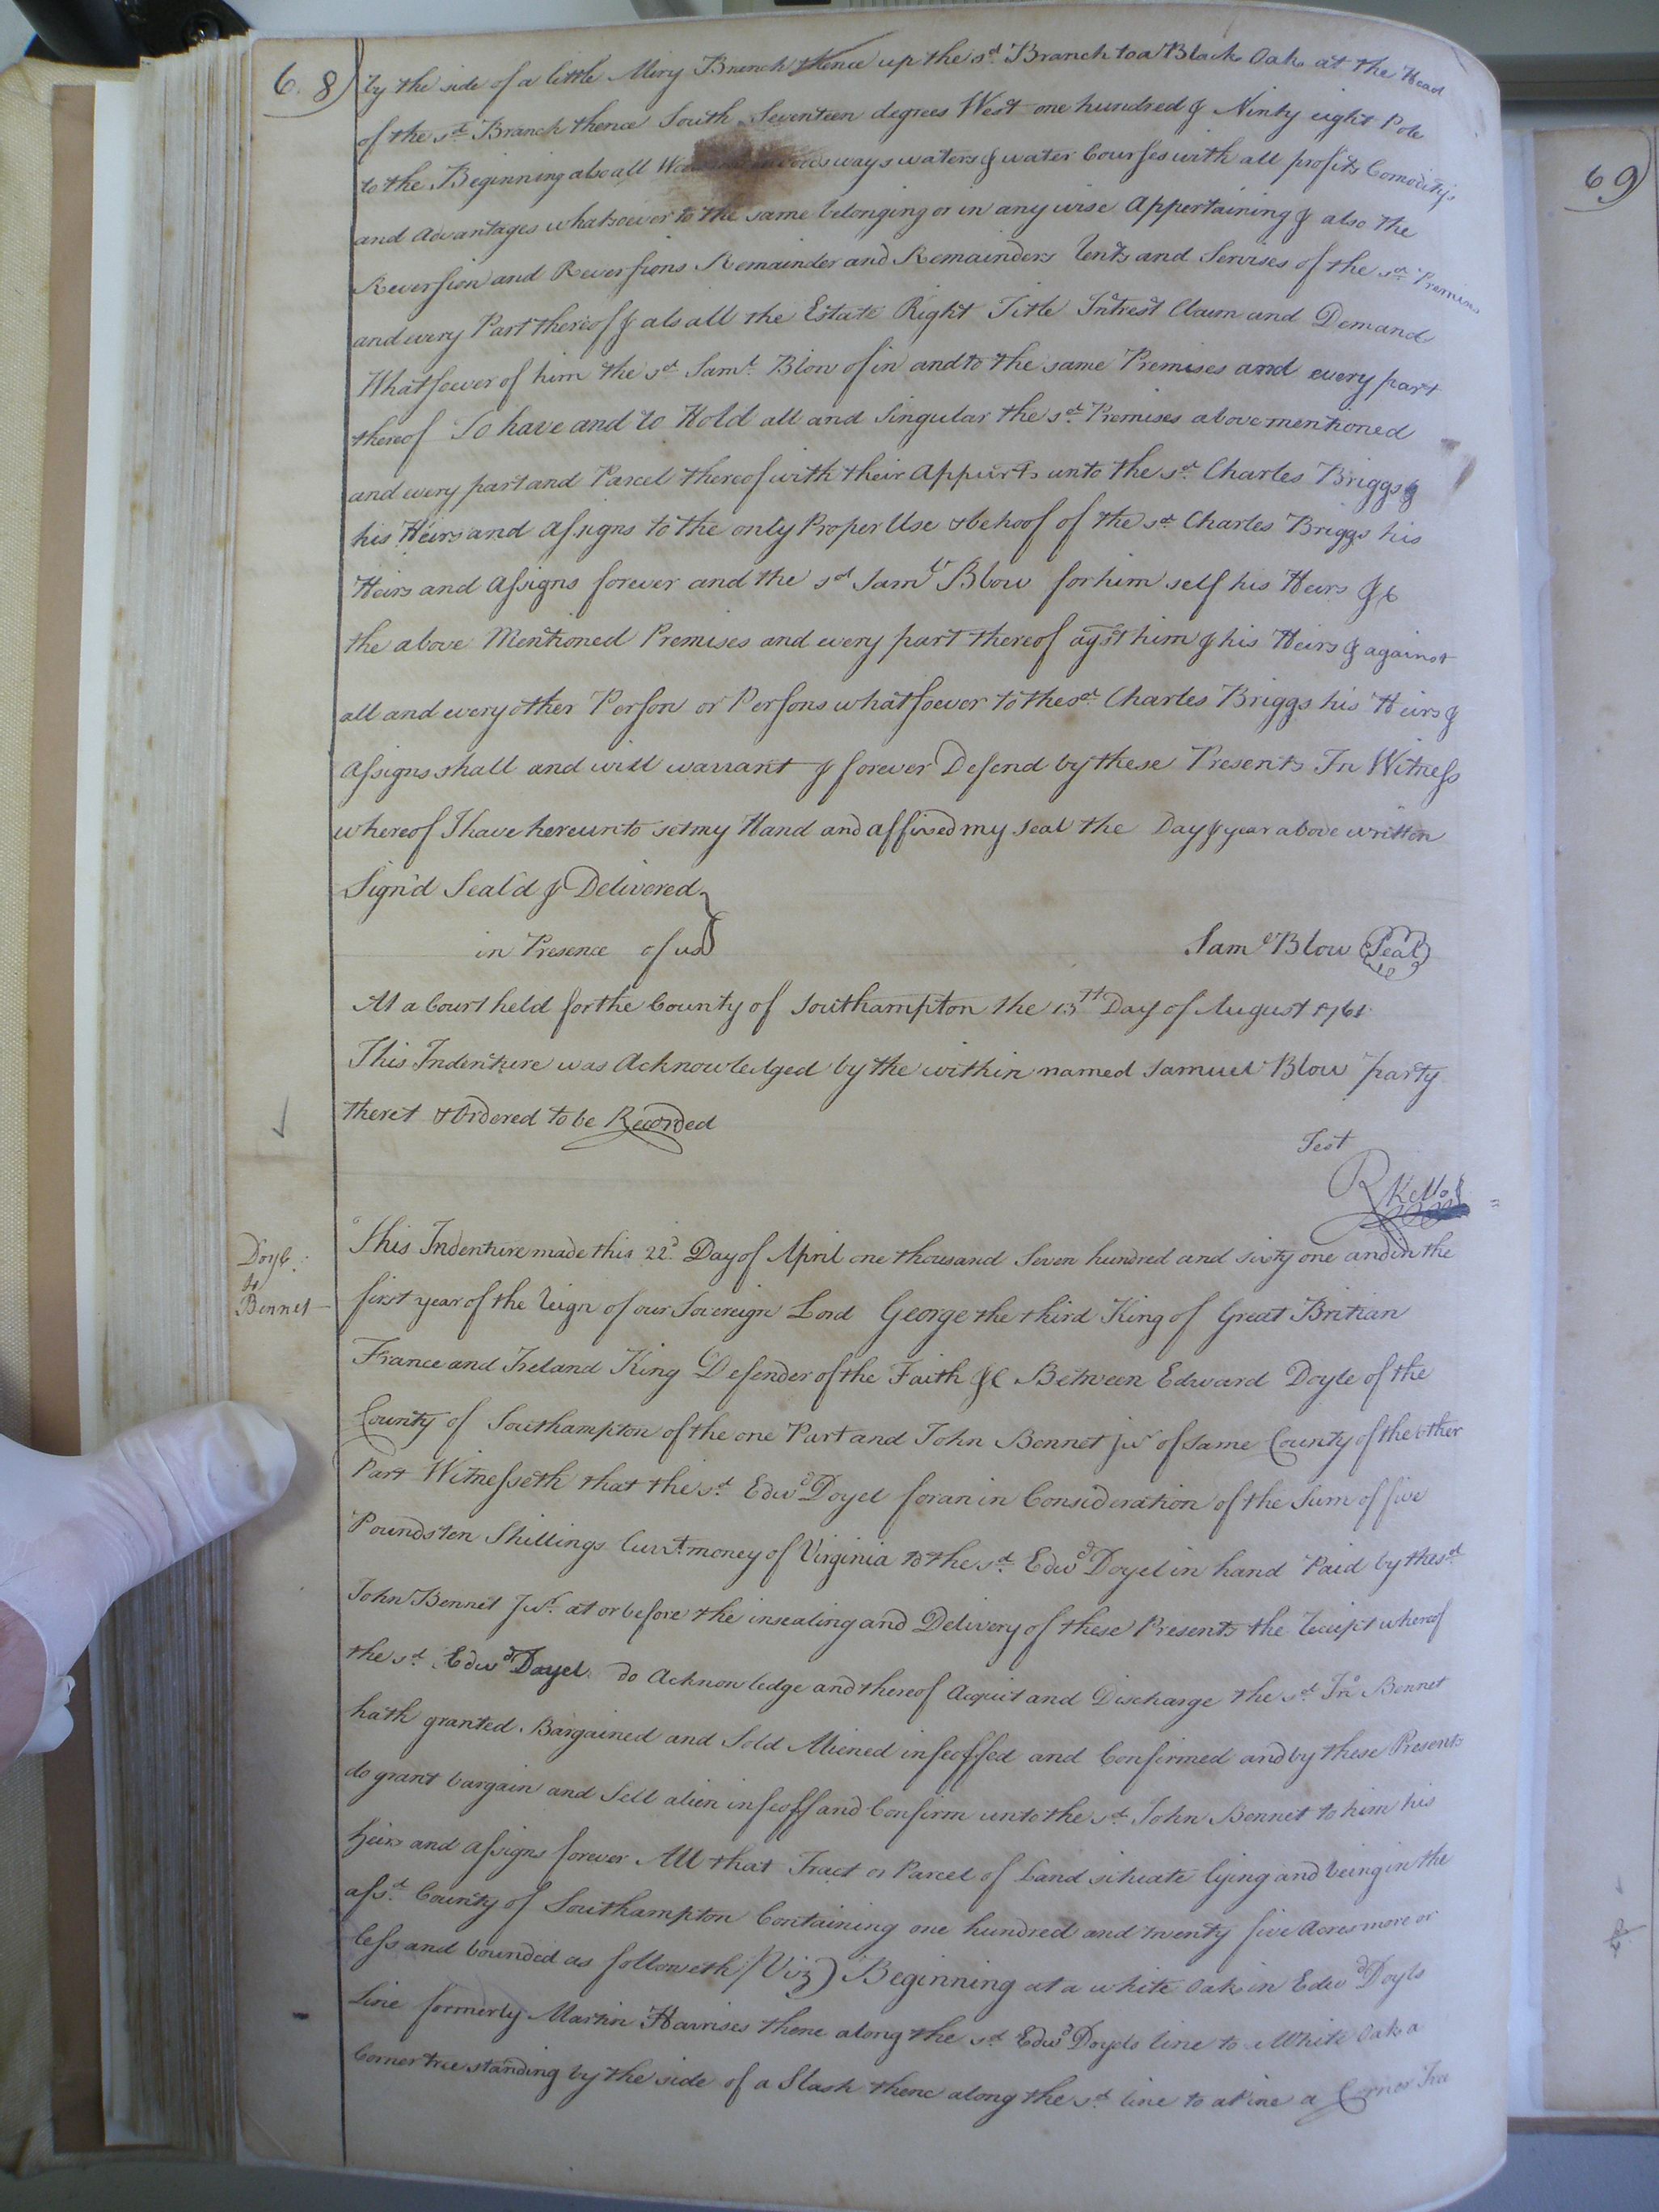 68)
by the side of a little Miry Branch thence up the sd. Branch to a Black Oak at the Head
of the sd. Branch thence South Seventeen degrees West one hundred & Ninty eight Pole
to the Beginning also all ways waters & water Courses with all profits Comoditys
and Advantages whatsoever to the same belonging or in any wise Appertaining & also the
Reversion and Reversions Remainder and Remainders Rents and Servises of the sd. Premises
and every Part thereof & als all the Estate Right Title Intrest Claim and Demand
Whatsoever of him the sd. Saml. Blow of in and to the same Premises and every part
thereof To have and to Hold all and Singular the sd. Premises above mentioned
and every part and Parcel thereof with their Appurts unto the sd. Charles Briggs &
his Heirs and Assigns to the only Proper Use & behoof of the sd. Charles Briggs his
Heirs and Assigns forever and the sd Saml. Blow for him self his Heirs &c
the above Mentioned Premises and every part thereof agst him & his Heirs & against
all and every other Person or Persons whatsoever to the sd. Charles Briggs his Heirs &
Assigns shall and will warrant & forever Defend by these Presents In Witness
whereof I have hereunto set my Hand and affixed my Seal the Day & year above written
Sign'd Seal'd & Delivered
in Presence of us
Saml Blow Seal
At a Court held for the County of Southampton the 13th Day of August 1761
This Indenture was Acknowledged by the within named Samuel Blow party
theret & Ordered to be Recorded
Test
R Kello
Doyle
to
Bennet
This Indenture made this 22d. Day of April one thousand Seven hundred and sixty one and in the
first year of the Reign of our Sovereign Lord George the third King of Great Britian
France and Ireland King Defender of the Faith &c Between Edward Doyle of the
County of Southampton of the one Part and John Bennet Jur of same County of the other
Part Witnesseth that the sd. Edwd Doyel for an in Consideration of the Sum of five
Pounds ten Shillings Currt. money of Virginia to the sd. Edwd Doyel in hand Paid by the sd
John Bennet Jur. at or before the insealing and Delivery of these Presents the Receipt whereof
the sd. Edwd Doyel do Acknowledge and thereof Acquit and Discharge the sd. Jno Bennet
hath granted Bargained and Sold Aliened infeoffed and Confirmed and by these Presents
do grant bargain and Sell alien infeoff and Confirm unto the sd. John Bennet to him his
heirs and assigns forever All that Tract or Parcel of Land situate lying and being in the
afsd. County of Southampton Containing one hundred and twenty five Acres more or
less and bounded as followeth (Viz) Beginning at a white Oak in Edwd Doyls
line formerly Martin Harrises thene along the sd Edwd Doyels line to a White Oak a
Corner tree standing by the side of a Slash thenc along the sd. line to a Pine a Corner Tree
69)